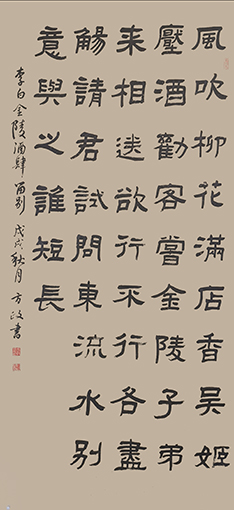 風吹柳花滿店香吳姬
壓酒勸客嘗金陵子弟
来相送欲行不行各盡
觴請君試問東流水別
意與之誰短長
李白金陵酒肆留別 戊戌秋月 方政書